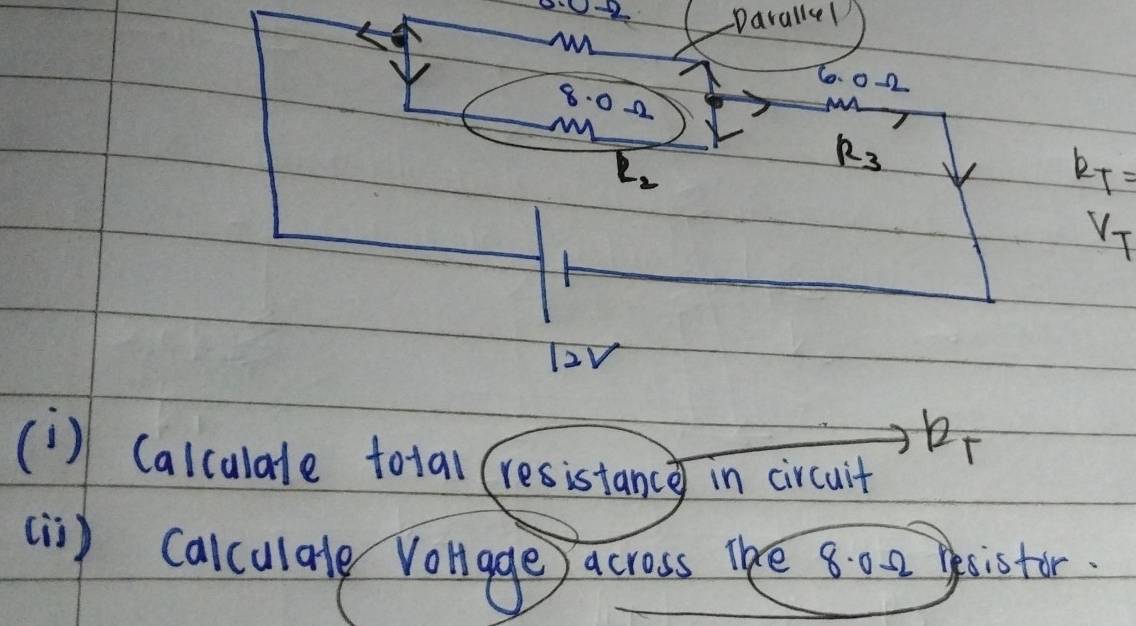 Parallel
8.0 Ω
6.0 Ω
R2
R3
RT =
VT
12V
(i) Calculate total resistance in circuit → RT
(ii) Calculate Voltage across the 8.0Ω resistor.